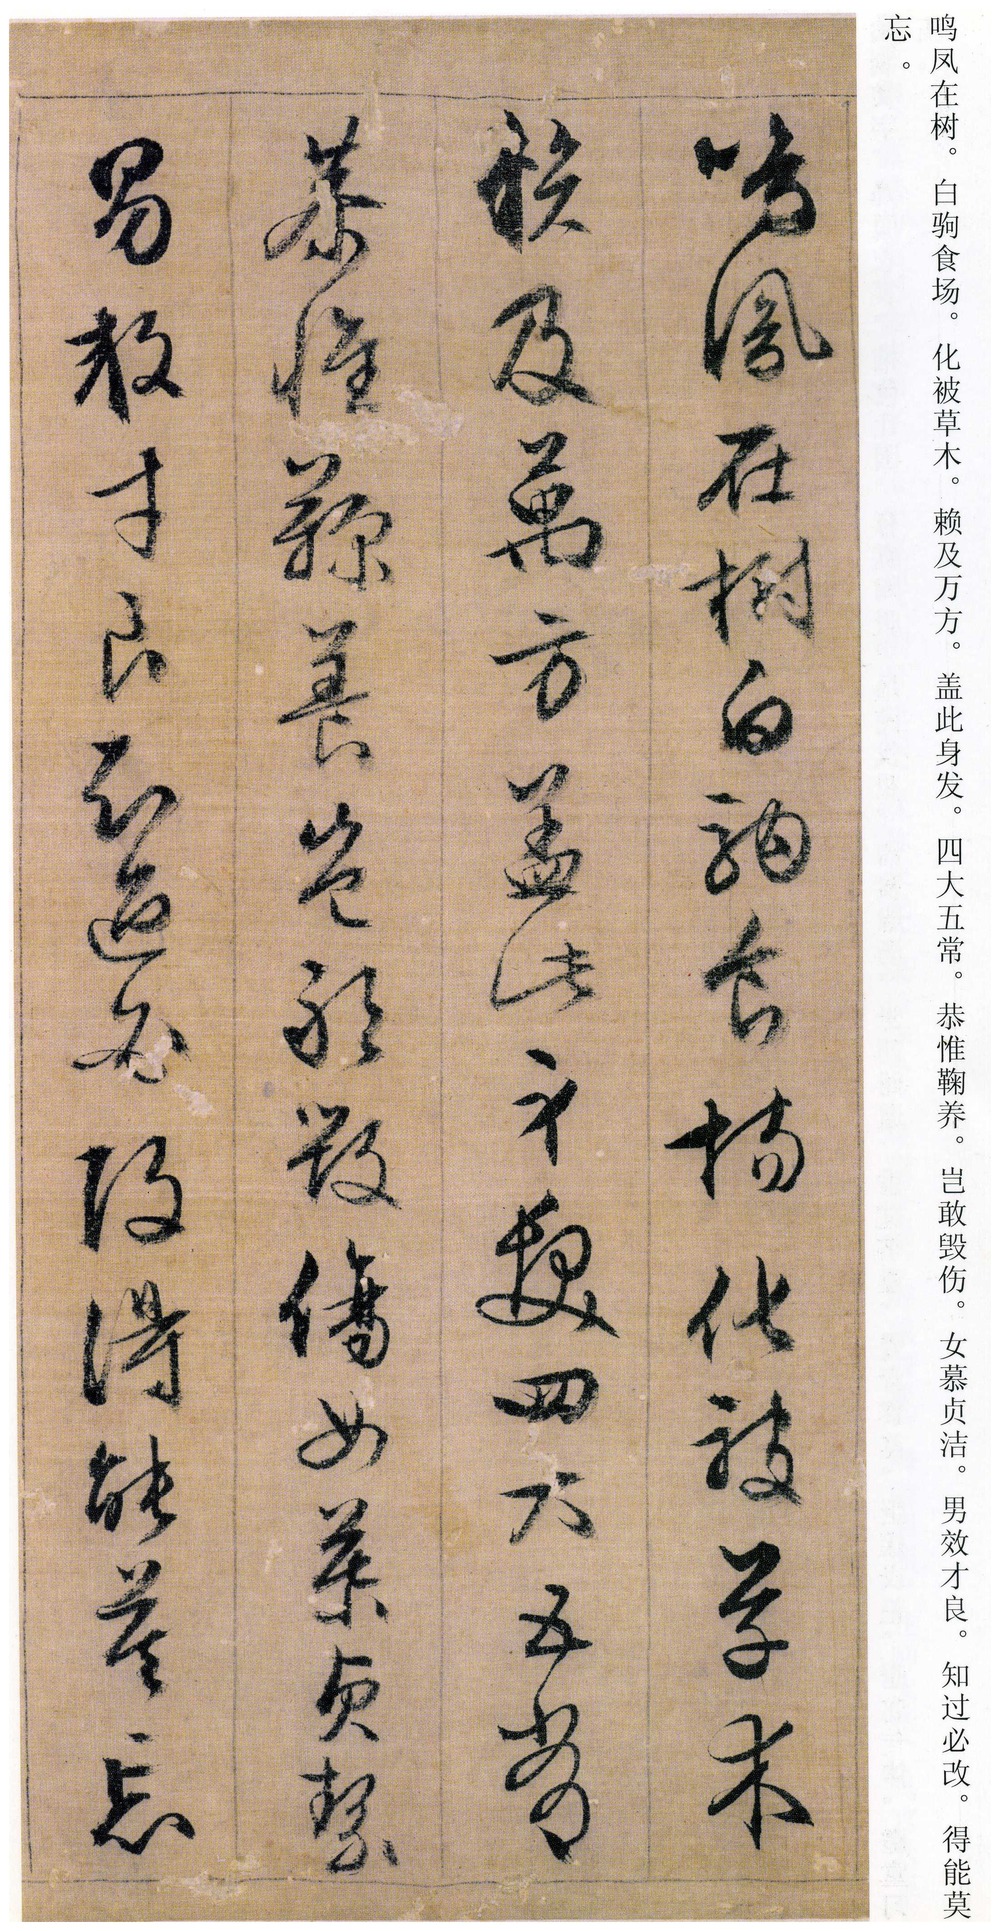 鸣凤在树。白驹食场。化被草木。赖及万方。盖此身发。四大五常。恭惟鞠养。岂敢毁伤。女慕贞洁。男效才良。知过必改。得能莫
忘。
鳴鳳在樹白駒食場化被草木
賴及萬方蓋此身髮四大五常
恭惟鞠養豈敢毀傷女慕貞潔
男效才良知過必改得能莫忘